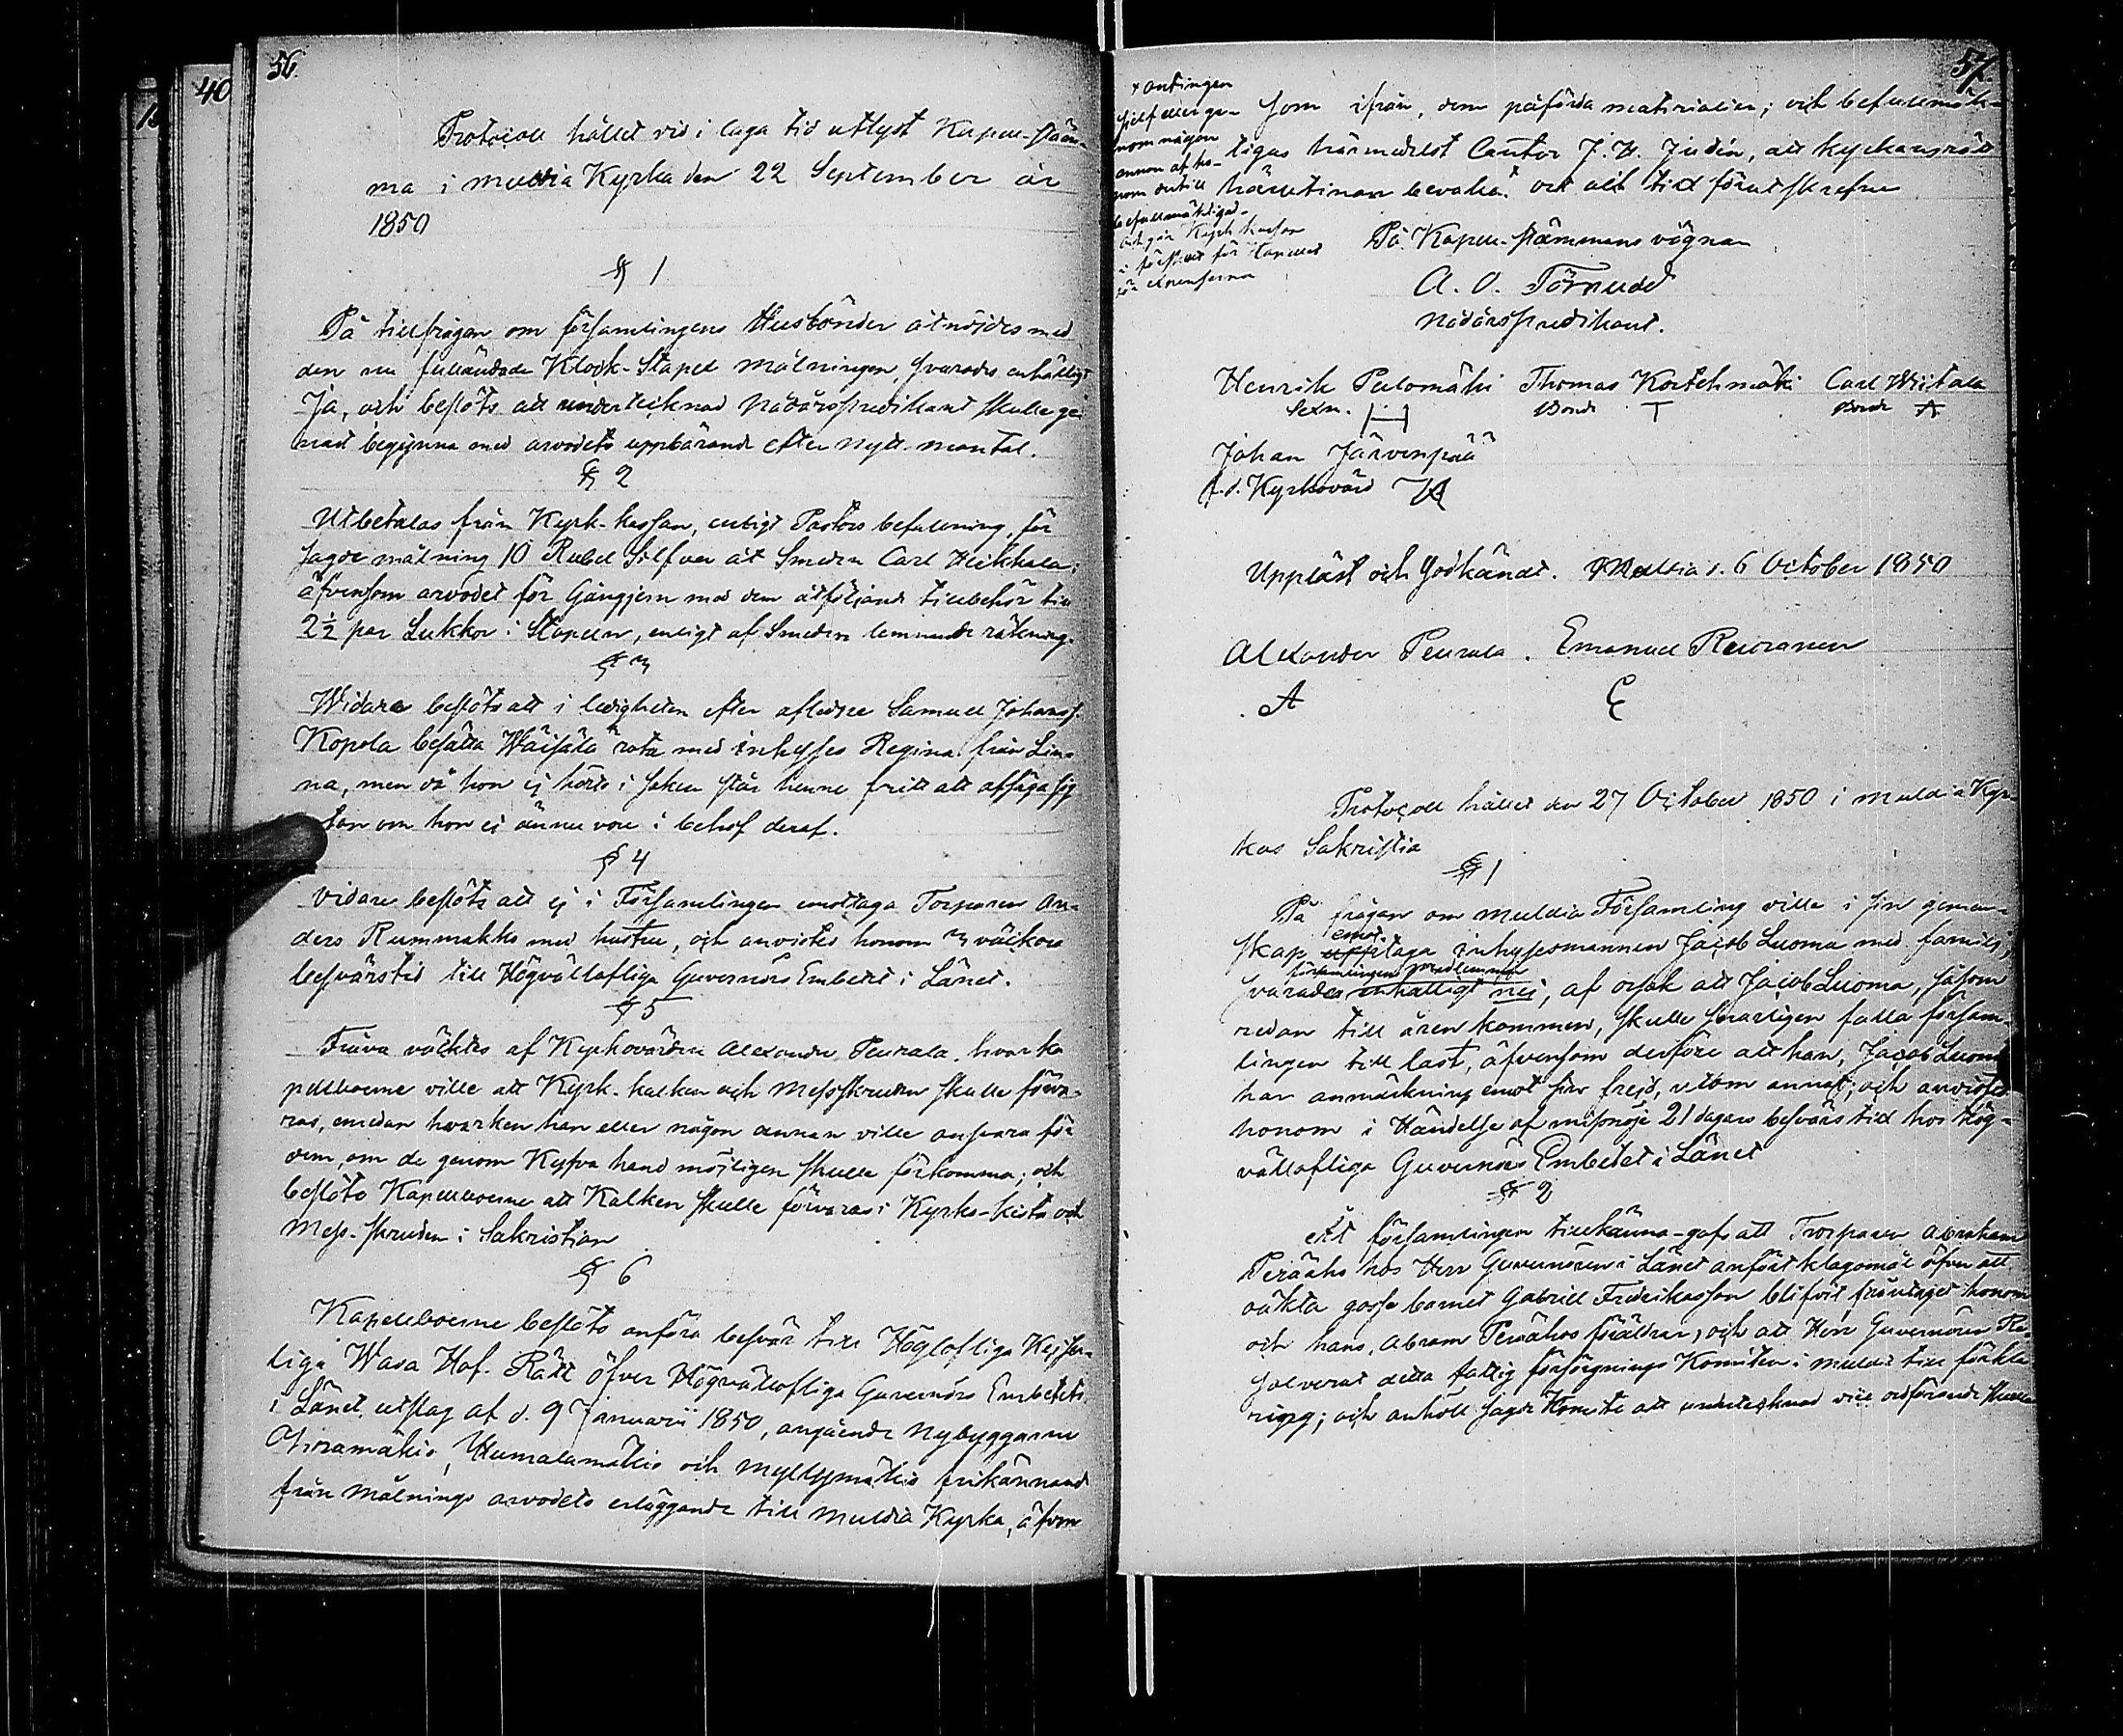 56.
40
Protocoll hållet vid i laga tid utlyst Kapell-stäm-
ma i Muldia Kyrka den 22 September år
1850
§ 1
På tillfrågan om församlingens Husbönder åtnöjdes med
den nu fulländade Klock-Stapel målningen, svarades enhälligt
Ja, och beslöts att undertecknad Nådårspredikant skulle ge-
nast begynna med arvodets uppbärande efter nytt mantal.
§ 2
Utbetalas från Kyrk-kassan, enligt Pastors befallning, för
sagde målning 10 Rubel Silfver åt Smeden Carl Heikkala;
äfvensom arvodet för Gångjern med dem åtföljande tillbehör till
2½ par Luckor i Stapeln, enligt af Smeden lemnande räkning.
§ 3
Widare beslöts att i ledigheten efter aflidne Samuel Johanss.
Kopola besätta Wäisälä rota med inhyses Regina från Lin-
na, men då hon ej hörts i saken står henne fritt att afsäga sig
rotan om hon ej ännu vore i behof deraf.
§ 4
Vidare beslöts att ej i Församlingen emottaga Torparen An-
ders Rummakko med hustru, och anvistes honom 3 veckors
besvärstid till Högvällofliga Guvernörs Embetet i Länet.
§ 5
Fråga väcktes af Kyrkovärden Alexander Peurala, hvar ka-
pellboerne ville att Kyrk-kalken och Messskruden skulle förva-
ras, emedan hvarken han eller någon annan ville ansvara för
dem, om de genom tjufva hand möjligen skulle förkomma; och
beslöto Kapellboerne att Kalken skulle förvaras i Kyrko-kista och
Mess-skruden i Sakristian
§ 6
Kapellboerne beslöto anföra besvär till Höglofliga Kejser-
liga Wasa Hof-Rätt öfver Högvällofliga Guvernörs Embetets
i Länet utslag af d. 9 Januarii 1850, angående Nybyggarne
Humalamäkis och Myllymäkis frikännande
från Målnings arvodets erläggande till Muldia Kyrka, äfven
57.
x antingen
sjelf eller ge-
nom någon
annan af ho-
nom dertill
befullmäktigad-
och går Kyrk kassan
i förskott för Kapellet
för expenserna
som ifrån, dem påförda materialier; och befullmäk-
tigas härmedelst Cantor J. H. Judén, att kyrkans rätt
härutinnan bevaka x ort och tid förutskrefne
På Kapell-stämmans vägnar
A. O. Törnudd
Nådårspredikant.
Henrik Palomäki Thomas Kortehmäki Carl Wiitala
Sexm. Bonde T Bonde A
Johan Järvenpää
f.d. Kyrkovärd
Uppläst och Godkändt. Muldia d. 6 October 1850
Alexander Peurala. Emanuel Reuranen
A E
Protocoll hållet den 27 October 1850 i Muldia Kyr-
kas Sakristia
§ 1
På frågan om Muldia Församling ville i sin gemen-
skap upptaga emot- inhysesmannen Jacob Luoma med familj,
svarades enhälligt församlingens medlemmar nej, af orsak att Jacob Luoma, såsom
redan till åren kommen, skulle snarligen falla försam-
lingen till last, äfvensom derföre att han, Jacob Luoma
har anmärkning emot sin frejd, utom annat; och anvistes
honom i Händelse af missnöje 21 dagars besvärs tid hos Hög-
vällofliga Guvernörs Embetet i Länet
§ 2
Åt församlingen tillkänna-gafs att Torparen Abraham
Peräaho hos Herr Guvernören i Länet anfört klagomål öfver att
oäkta gosse barnet Gabriel Fredriksson blifvit fråntaget honom
och hans, Abram Peräahos föräldrar, och att Herr Guvernören Re-
solverat detta fattig försörjnings Komitén i Muldia till förkla-
ring; och anhöll sagde Komité att undertecknad vice ordförande skulle